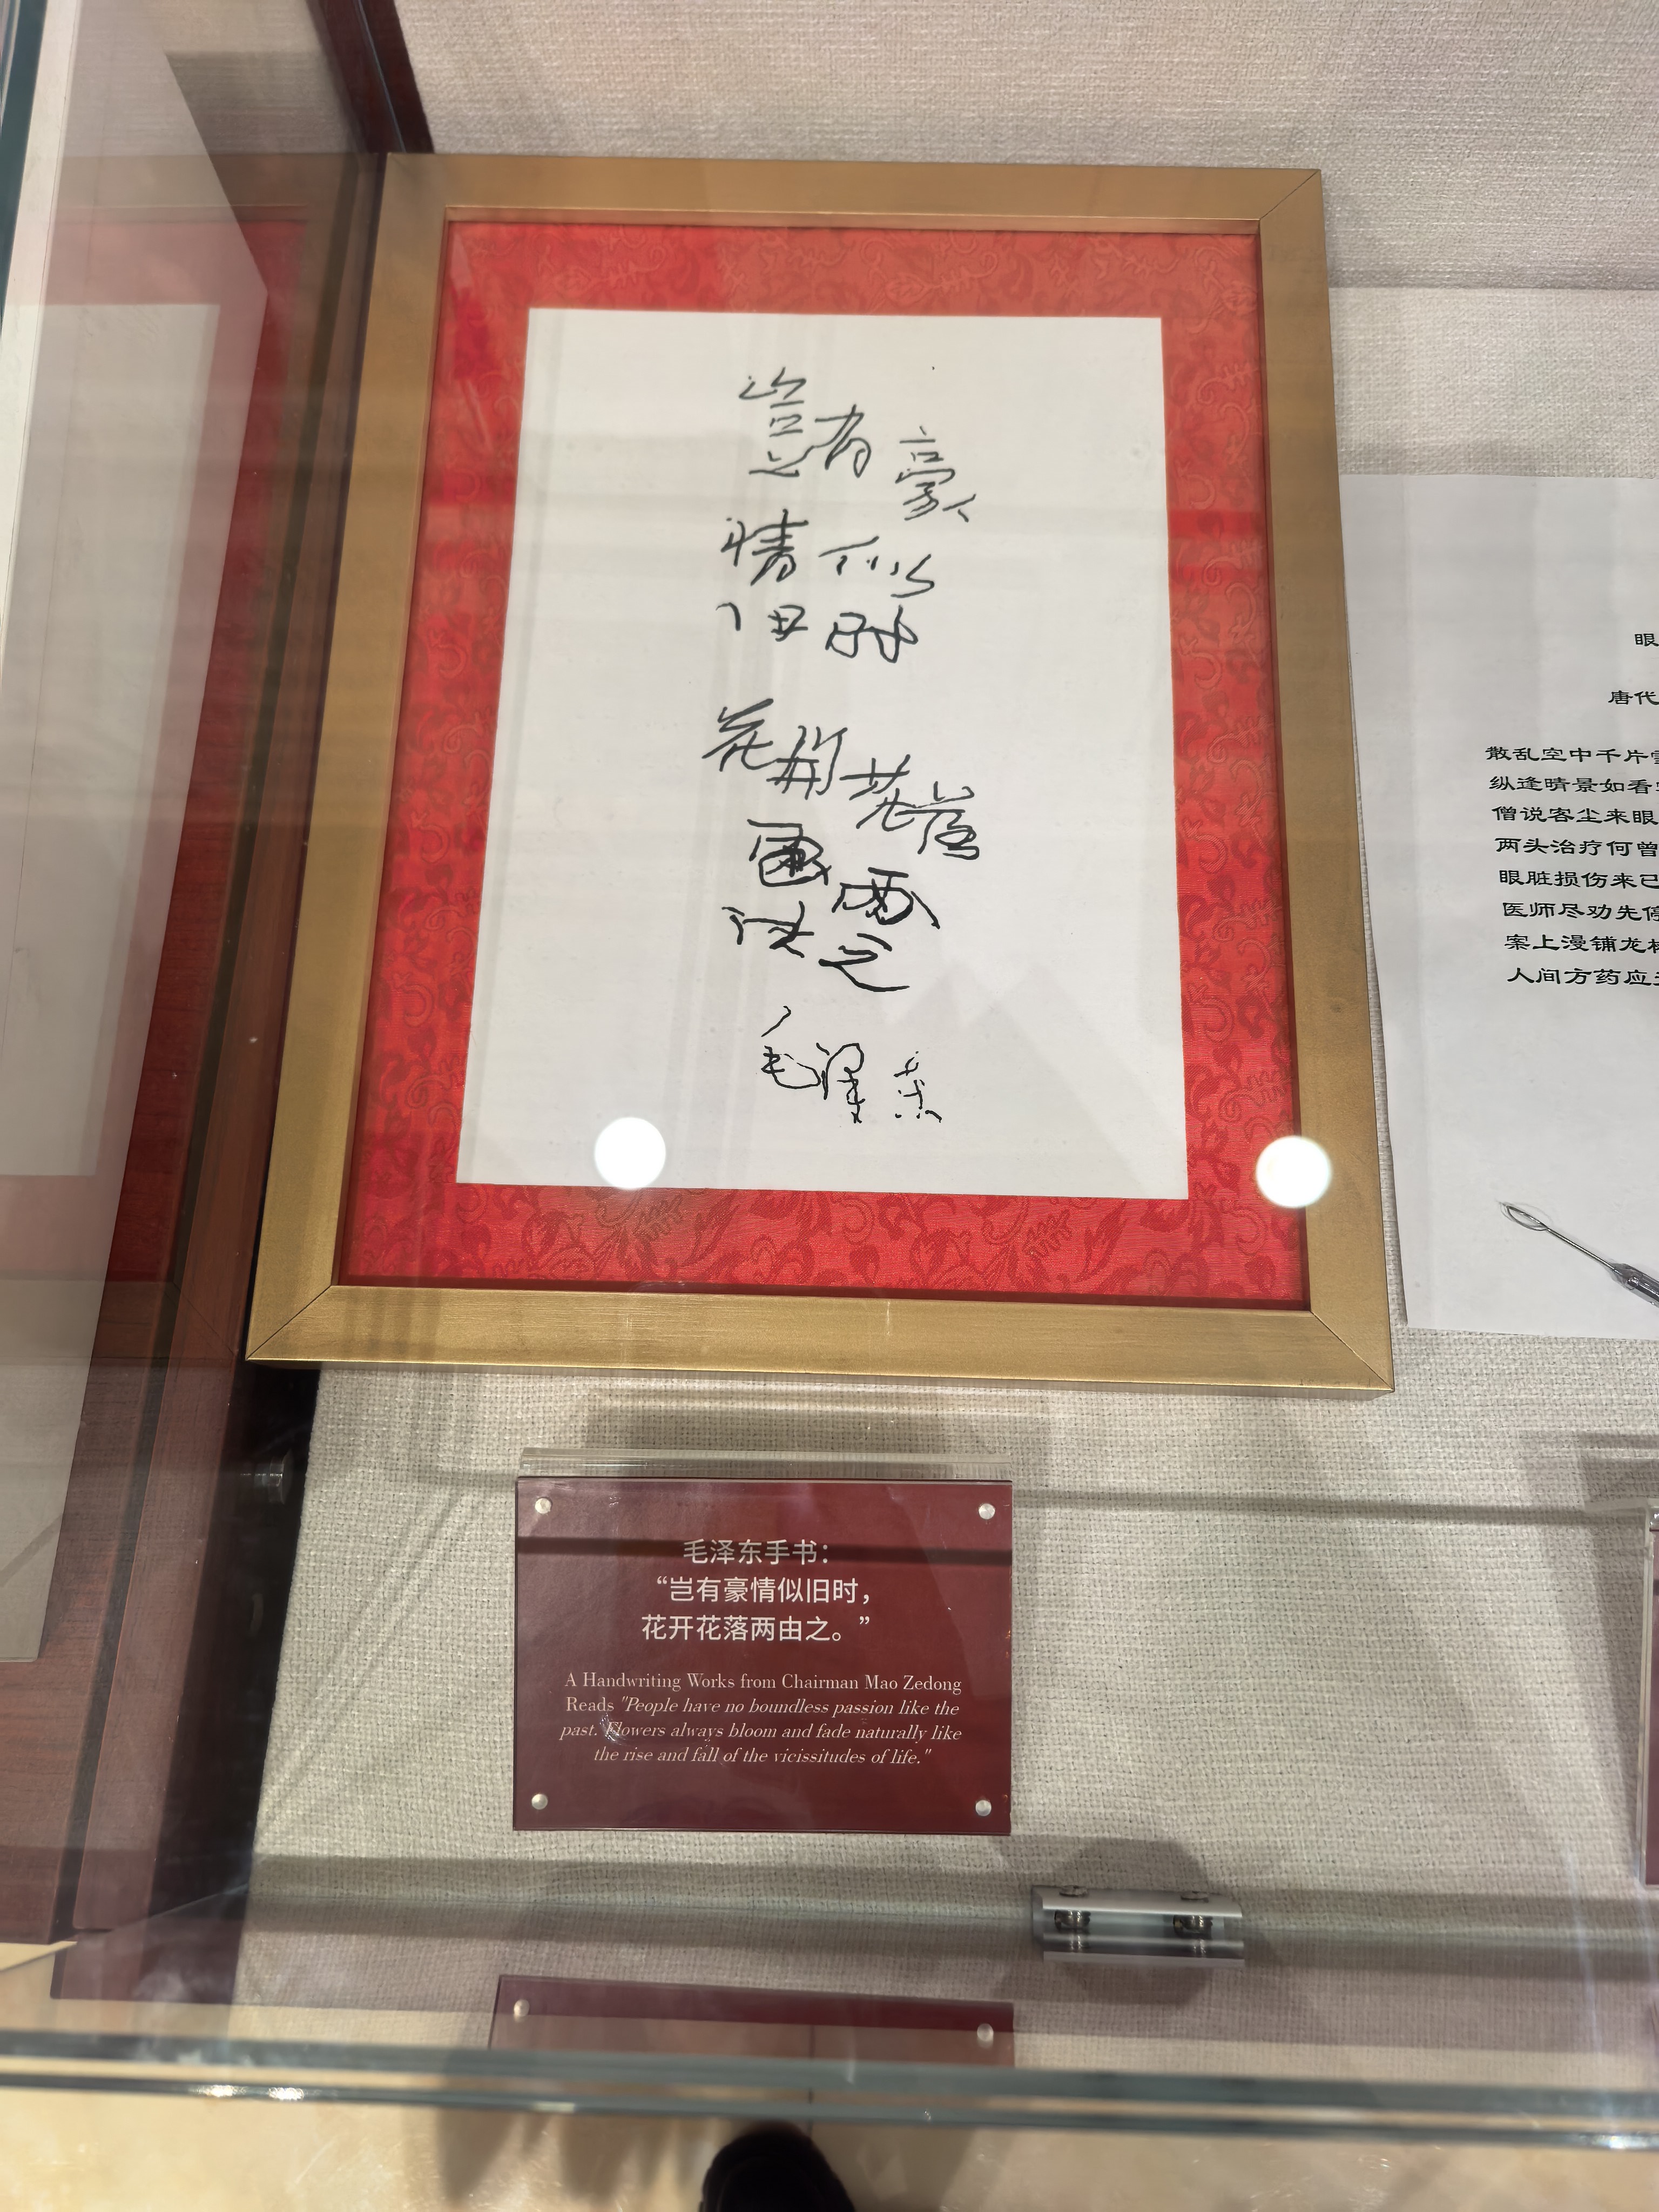 豈有豪
情似
旧时
花開花落
两
之
毛泽东
眼
唐代
散乱空中千片
纵逢晴景如看
僧说客尘来眼
两头治疗何曾
眼脏损伤来已
医师尽劝先停
案上漫铺龙
人间方药应
毛泽东手书：
“岂有豪情似旧时，
花开花落两由之。”
A Handwriting Works from Chairman Mao Zedong
Reads "People have no boundless passion like the
past. Flowers always bloom and fade naturally like
the rise and fall of the vicissitudes of life."